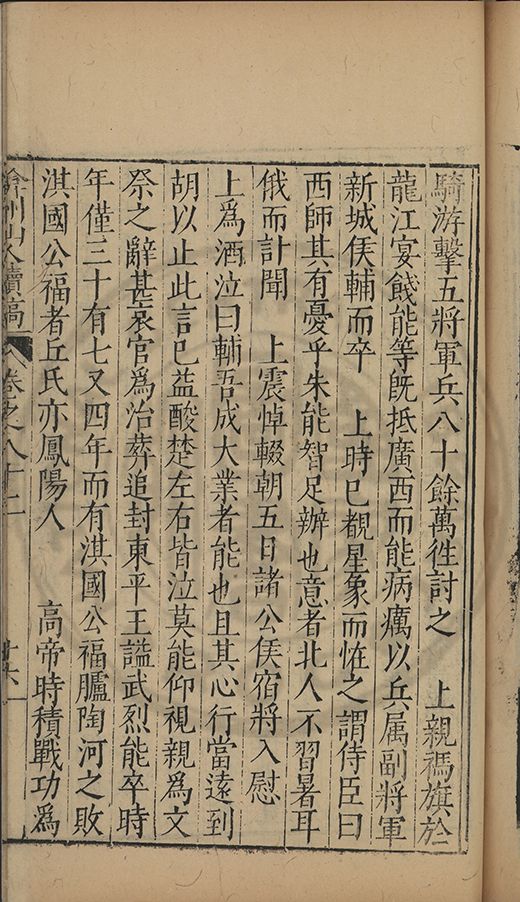 騎游擊五將軍兵八十餘萬徃討之　上親禡旗於
龍江宴餞能等旣抵廣西而能病癘以兵属副將軍
新城侯輔而卒　上時已覩星象而恠之謂侍臣曰
西師其有憂乎朱能智足辦也意者北人不習暑耳
俄而訃聞　上震悼輟朝五日諸公侯宿將入慰
上爲酒泣曰輔吾成大業者能也且其心行當遠到
胡以止此言已益酸楚左右皆泣莫能仰視親爲文
祭之辭甚哀官爲治葬追封東平王謚武烈能卒時
年僅三十有七又四年而有淇國公福臚陶河之敗
淇國公福者丘氏亦鳳陽人　高帝時積戰功爲
弇州山人續稿　卷之八十二　廿六